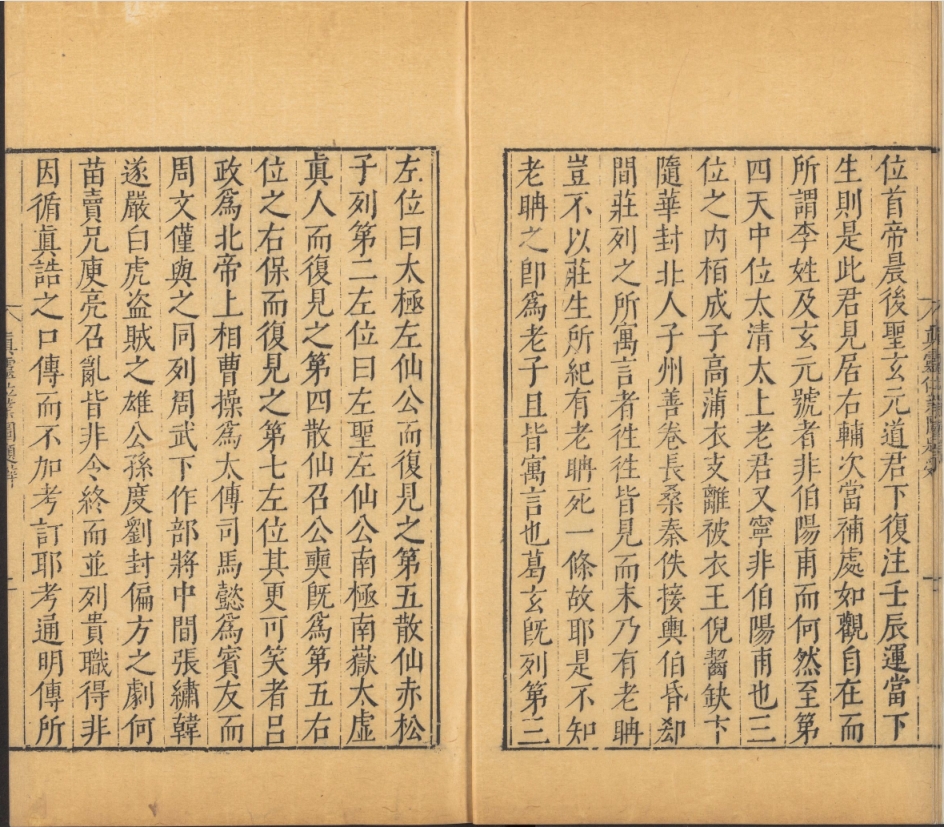 位首帝晨後聖玄元道君下復注壬辰運當下
生則是此君見居右輔次當補處如觀自在而
所謂李姓及玄元號者非伯陽甫而何然至第
四天中位太清太上老君又寧非伯陽甫也三
位之内栢成子高蒲衣支離被衣王倪齧缺卞
隨華封北人子州善卷長桑秦佚接輿伯昏郄
間莊列之所寓言者徃徃皆見而末乃有老聃
豈不以莊生所紀有老聃死一條故耶是不知
老聃之卽爲老子且皆寓言也葛玄旣列第三
左位曰太極左仙公而復見之第五散仙赤松
子列第二左位曰左聖左仙公南極南嶽太虛
眞人而復見之第四散仙召公奭旣爲第五右
位之右保而復見之第七左位其更可笑者吕
政爲北帝上相曹操爲太傅司馬懿爲賓友而
周文僅與之同列周武下作部將中間張繡韓
遂嚴白虎盗賊之雄公孫度劉封偏方之劇何
苗賣兄庾亮召亂皆非令終而並列貴職得非
因循眞誥之口傳而不加考訂耶考通明傳所
眞靈位業圖